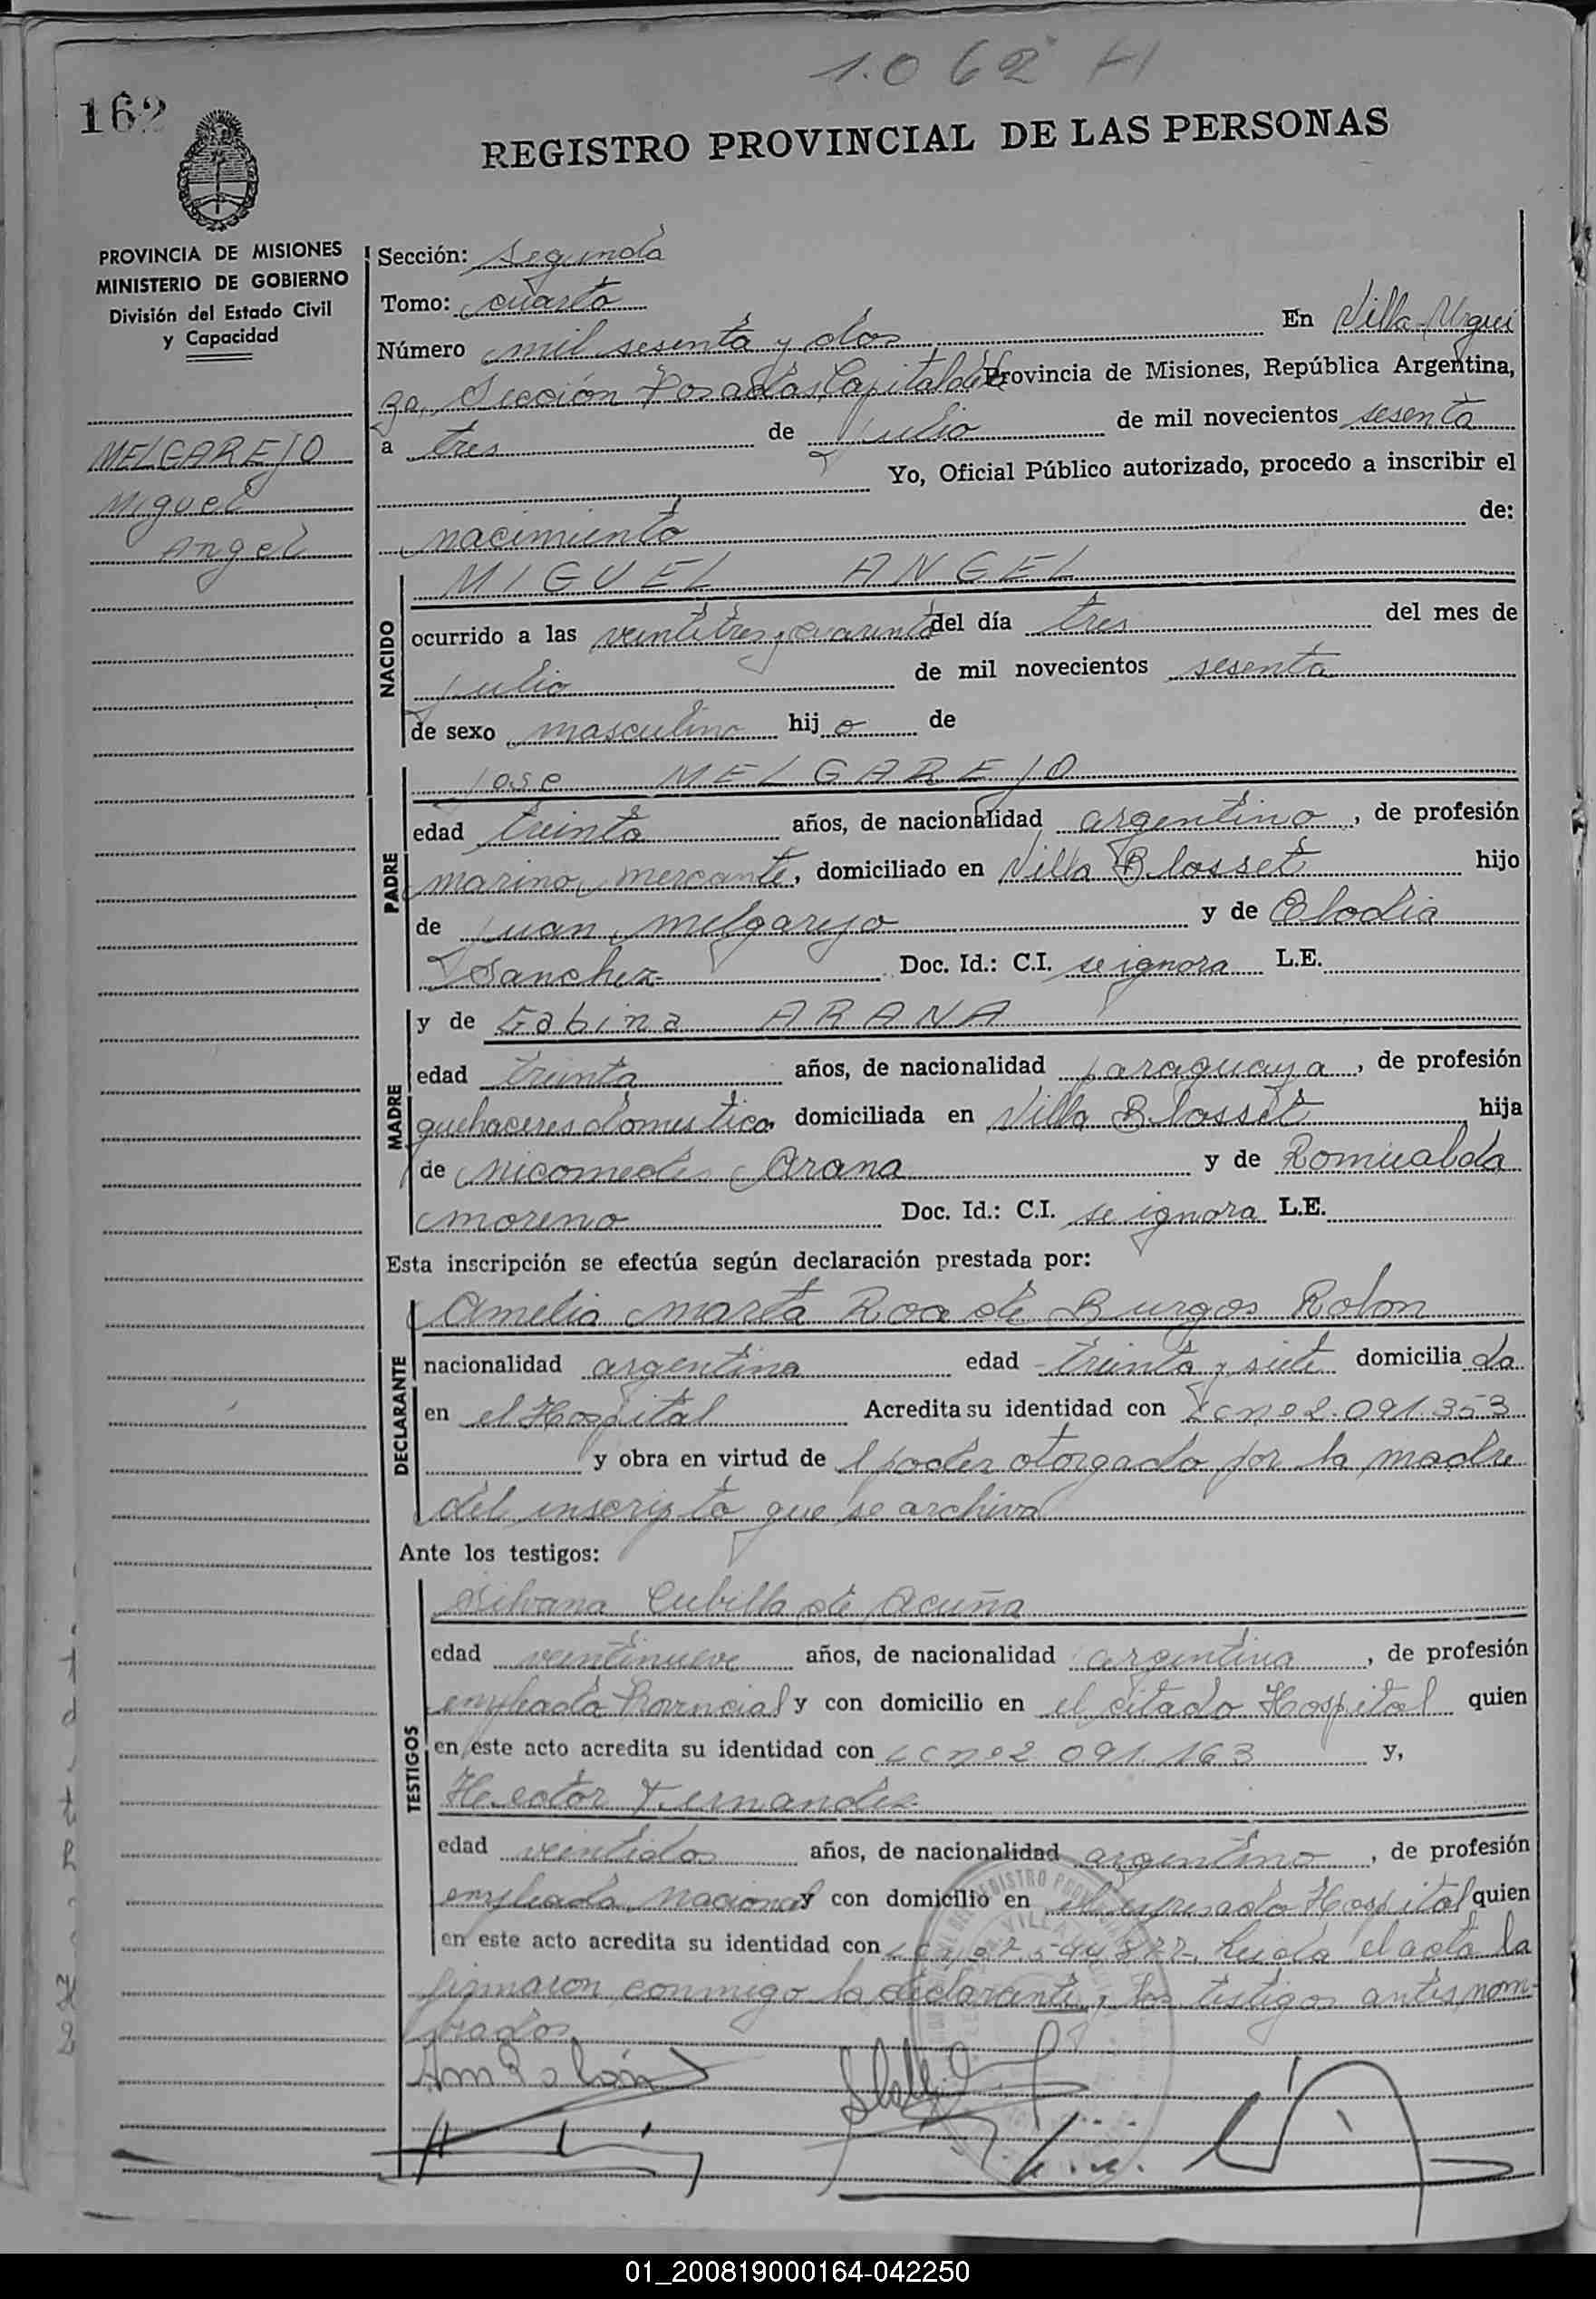 1.062 H
162
REGISTRO PROVINCIAL DE LAS PERSONAS
PROVINCIA DE MISIONES
MINISTERIO DE GOBIERNO
División del Estado Civil
y Capacidad
MELGAREJO
Miguel
Angel
Sección: Segunda
Tomo: cuarto
Número mil sesenta y dos En Villa Urqui
za, Sección Posadas, Capital de la Provincia de Misiones, República Argentina,
a tres de julio de mil novecientos sesenta
Yo, Oficial Público autorizado, procedo a inscribir el
nacimiento de:
NACIDO
MIGUEL ANGEL
ocurrido a las veintitres y cuarenta del día tres del mes de
julio de mil novecientos sesenta
de sexo masculino hijo de
PADRE
Jose MELGAREJO
edad treinta años, de nacionalidad argentino, de profesión
marino mercante, domiciliado en Villa Blosset hijo
de Juan Melgarejo y de Elodia
Sanchez Doc. Id.: C.I. se ignora L.E.
MADRE
y de Gabina ARANA
edad treinta años, de nacionalidad paraguaya, de profesión
quehaceres domestico domiciliada en Villa Blosset hija
de Nicomedes Arana y de Romualda
Moreno Doc. Id.: C.I. se ignora L.E.
Esta inscripción se efectúa según declaración prestada por:
DECLARANTE
Amelia Marta Roa de Burgos Rolon
nacionalidad argentina edad treinta y siete domiciliada
en el Hospital Acredita su identidad con LC nº 2.091.353
y obra en virtud de l poder otorgado por la madre
del inscripto que se archiva
Ante los testigos:
TESTIGOS
Silvana Cubilla de Acuña
edad veintinueve años, de nacionalidad argentina, de profesión
empleada Provincial y con domicilio en el citado Hospital quien
en este acto acredita su identidad con LC nº 2 091.163 y,
Hector Fernandez
edad veintidos años, de nacionalidad argentino, de profesión
empleado Nacional y con domicilio en el expresado Hospital quien
en este acto acredita su identidad con Leida el acta la
firmaron conmigo la declarante y los testigos antes nom-
brados
Am Rolón
01_200819000164-042250